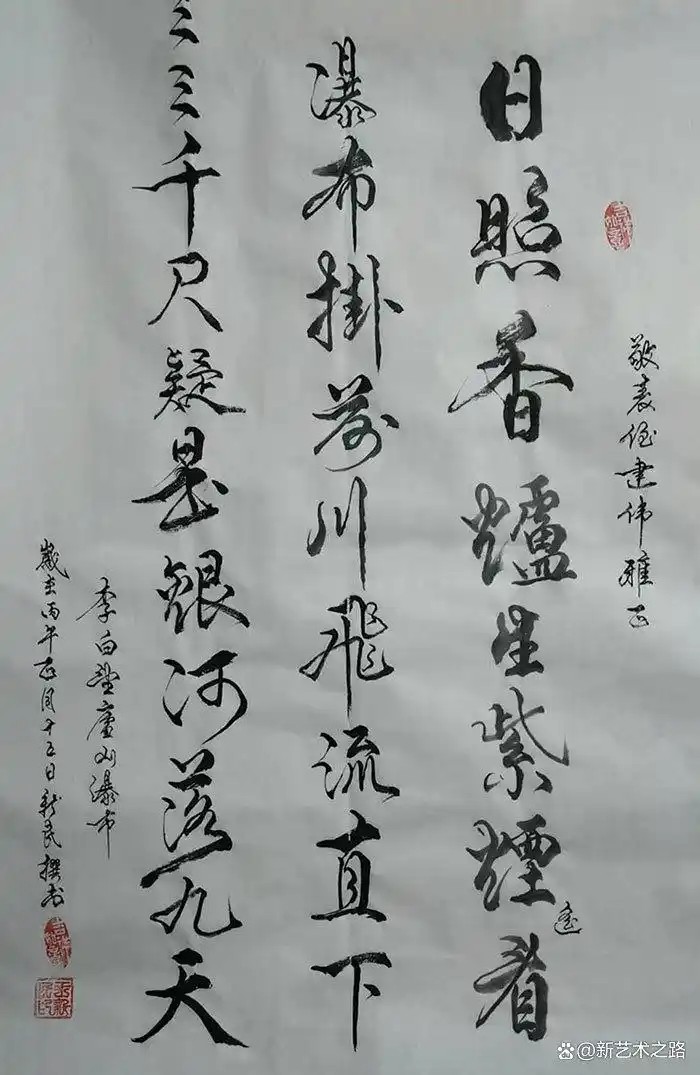 敬表侄建伟雅正
日照香爐生紫煙遙看
瀑布掛前川飛流直下
三三千尺疑是銀河落九天
李白望廬山瀑布
歲在丙午正月十五日新民撰书
@新艺术之路